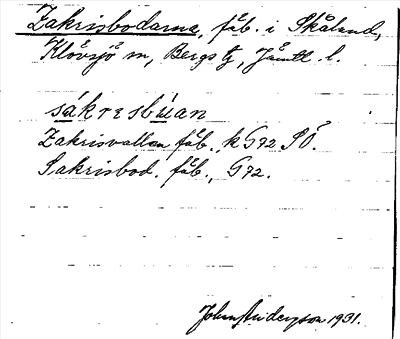 Zakrisbodarna, fäb. i Skålan,
Klövsjö sn, Bergs tg, Jämtl. l.
sákresbùan
Zakrisvallen, fäb., k G72 SÖ.
Sakrisbod. fäb., G72.
John Anderzon 1931.